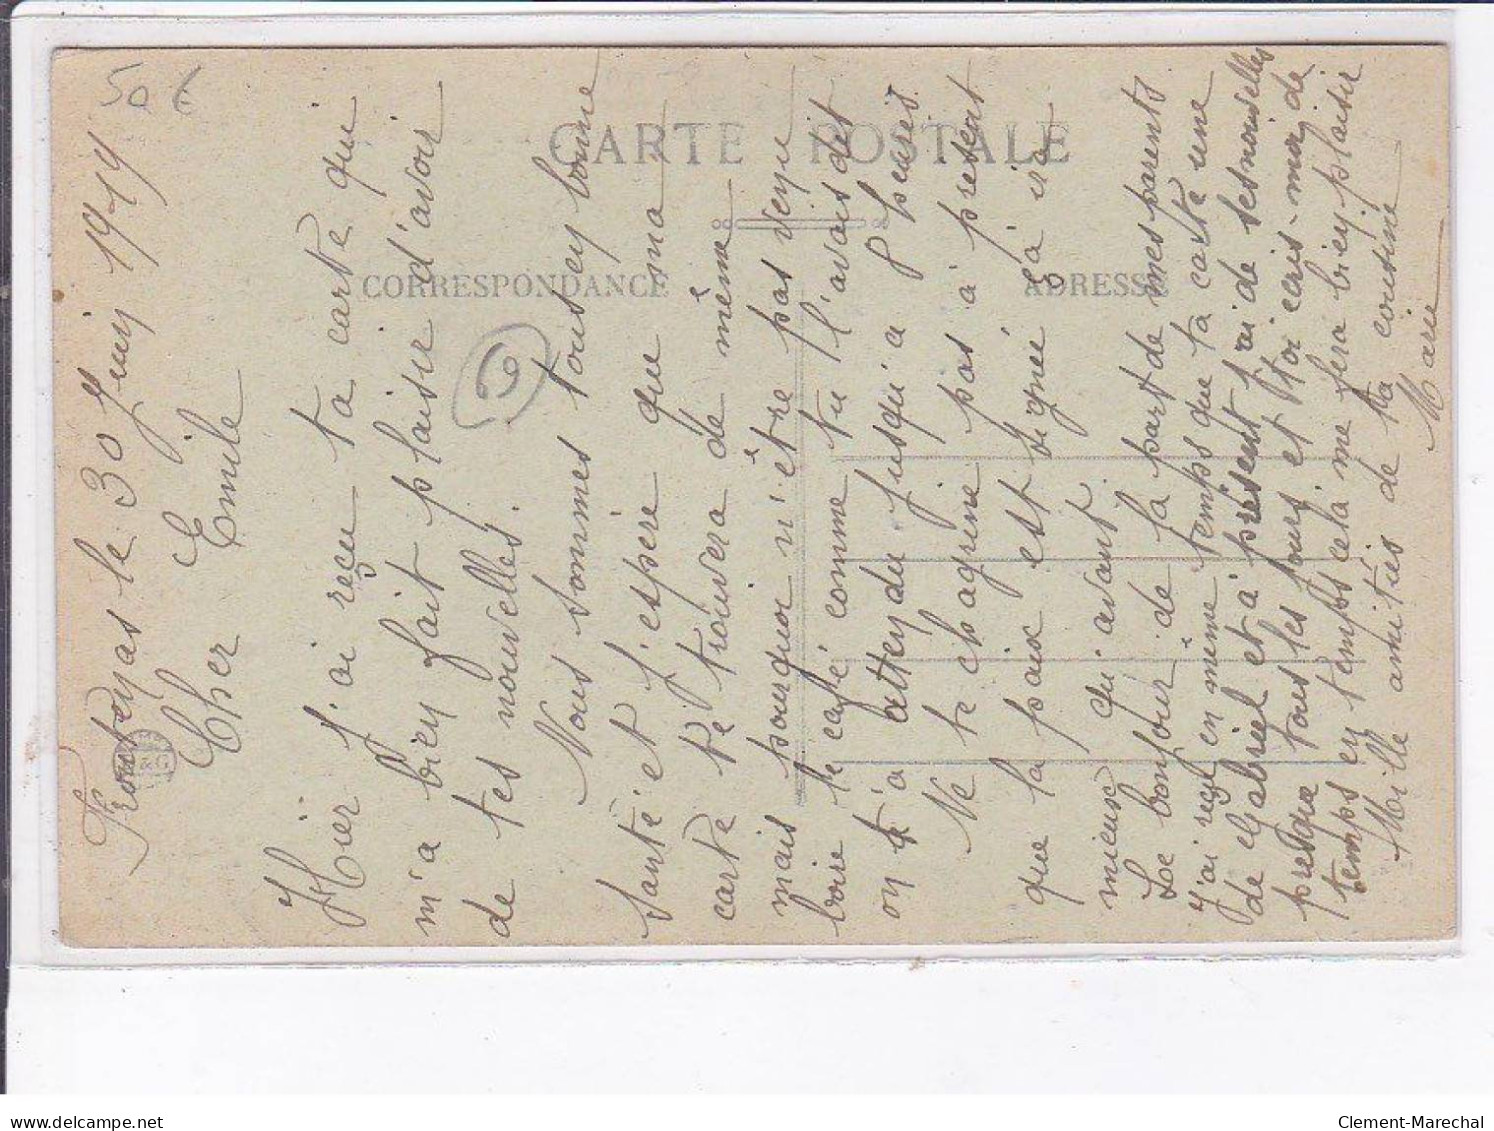 50 €
CARTE POSTALE
CORRESPONDANCE
ADRESSE
69
le 30 Juin 1919
Cher Emile
Hier j'ai reçu ta carte qui
m'a bien fait plaisir d'avoir
de tes nouvelles.
Nous sommes tous en bonne
santé et j'espère que ma
carte te trouvera de même
mais pourquoi n'être pas venu
boire le café comme tu l'avais dit
on t'a attendu jusqu'a 8 heures.
Ne te chagrine pas à present
que la paix est signée ça ira
mieux qu'avant.
Le bonjour de la part de mes parents
J'ai reçu en même temps que ta carte une
de Gabriel et à présent j'ai de ses nouvelles
presque tous les jours et toi ecris-moi de
temps en temps cela me fera bien plaisir
Mille amitiés de ta cousine
Marie
delcampe.net
Clement-Marechal